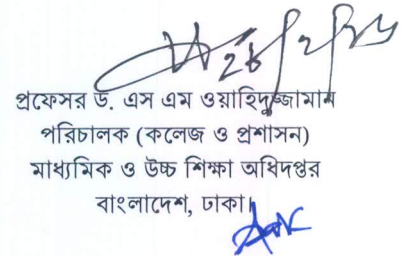 প্রফেসর ড. এস এম ওয়াহিদুজ্জামান
পরিচালক (কলেজ ও প্রশাসন)
মাধ্যমিক ও উচ্চ শিক্ষা অধিদপ্তর
বাংলাদেশ, ঢাকা।